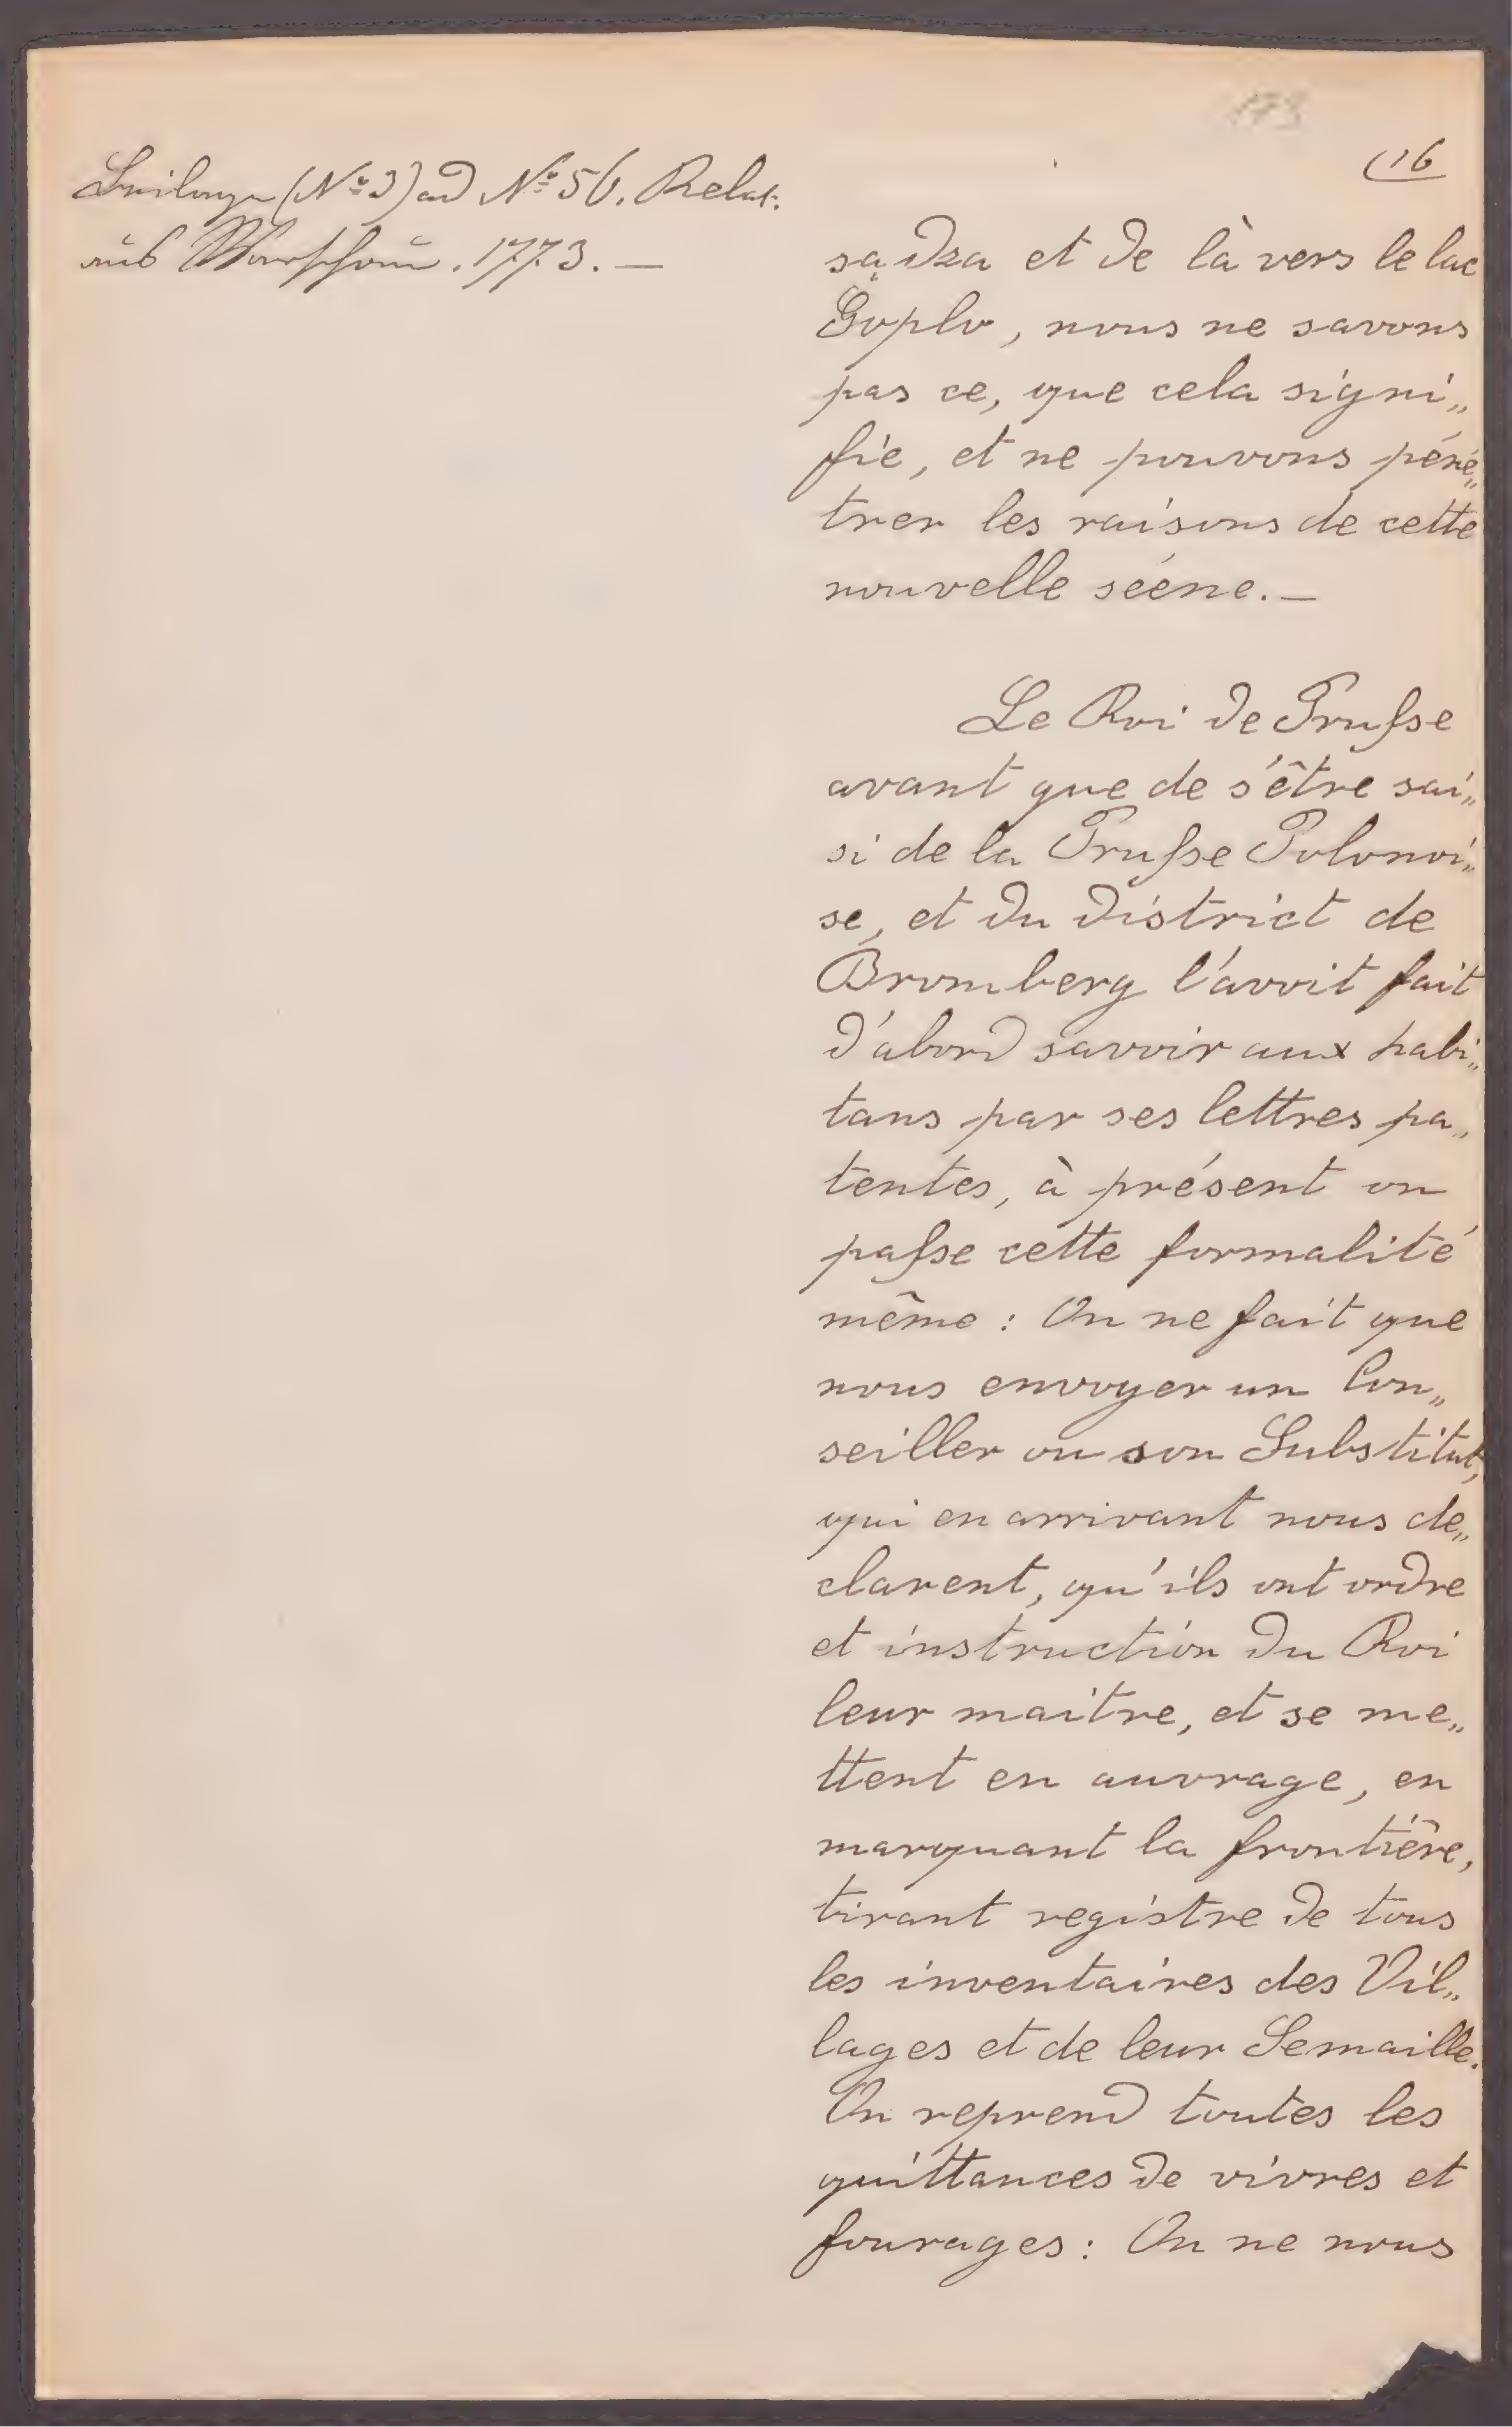 173
16
Beilage (No 3) ad No 56. Relat.
aus Warschau. 1773. —
sądza et de là vers le lac
Goplo, nous ne savons
pas ce, que cela signi„
fie, et ne pouvons péné„
trer les raisons de cette
nouvelle scéne. —
Le Roi de Prusse
avant que de s'être sai„
si de la Prusse Polonoi„
se, et du District de
Bromberg l'avoit fait
d'abord savoir aux habi„
tans par ses lettres pa„
tentes, à présent on
passe cette formalité
même : On ne fait que
nous envoyer un Con„
seiller ou son Substitut,
qui en arrivant nous de„
clarent, qu'ils ont ordre
et instruction du Roi
leur maitre, et se me„
ttent en auvrage, en
marquant la frontiêre,
tirant registre de tous
les inventaires des Vil„
lages et de leur Semaille.
On reprend toutes les
quittances de vivres et
fourages : On ne nous